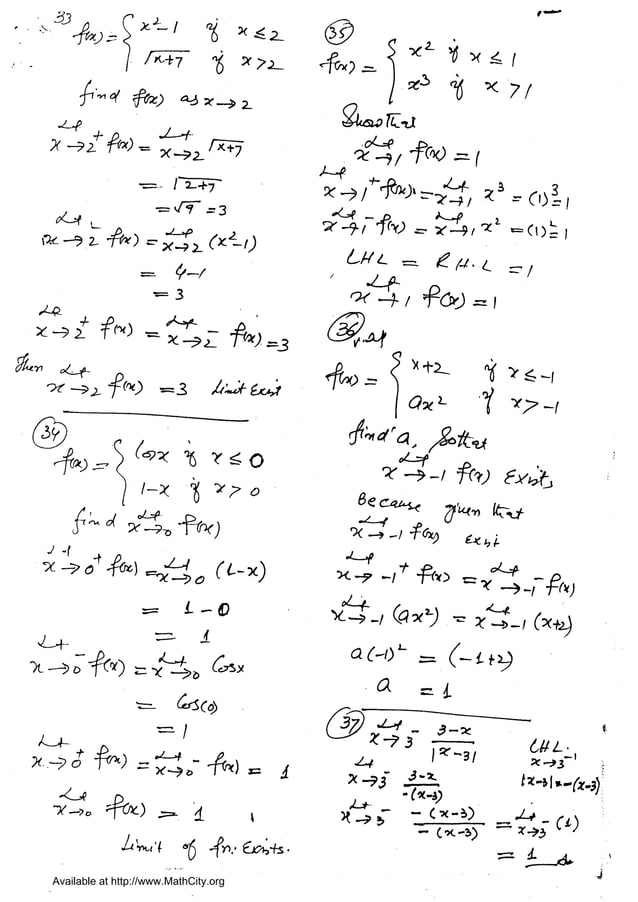 33 f(x) = { x² − 1 if x ≤ 2
√x+7 if x > 2
find f(x) as x → 2
Lt x → 2⁺ f(x) = Lt x → 2 √x+7
= √2+7
= √9 = 3
Lt x → 2⁻ f(x) = Lt x → 2 (x² − 1)
= 4 − 1
= 3
Lt x → 2⁺ f(x) = Lt x → 2⁻ f(x) = 3
Then Lt x → 2 f(x) = 3 Limit Exist
34
f(x) = { Cosx if x ≤ 0
1 − x if x > 0
find Lt x → 0 f(x)
Lt x → 0⁺ f(x) = Lt x → 0 (1 − x)
= 1 − 0
= 1
Lt x → 0⁻ f(x) = Lt x → 0 Cosx
= Cos(0)
= 1
Lt x → 0⁺ f(x) = Lt x → 0⁻ f(x) = 1
Lt x → 0 f(x) = 1
Limit of fn: Exists.
35
f(x) = { x² if x ≤ 1
x³ if x > 1
Show that
Lt x → 1 f(x) = 1
Lt x → 1⁺ f(x) = Lt x → 1 x³ = (1)³ = 1
Lt x → 1⁻ f(x) = Lt x → 1 x² = (1)² = 1
LHL = R.H.L = 1
Lt x → 1 f(x) = 1
36
f(x) = { x+2 if x ≤ −1
ax² if x > −1
find a, So that
Lt x → −1 f(x) Exists,
Because given that
Lt x → −1 f(x) Exist
Lt x → −1⁺ f(x) = Lt x → −1⁻ f(x)
Lt x → −1 (ax²) = Lt x → −1 (x+2)
a(−1)² = (−1+2)
a = 1
37 Lt x → 3⁻ 3−x / |x−3| LHL.
x → 3⁻
Lt x → 3⁻ 3−x / −(x−3) |x−3| = −(x−3)
Lt x → 3⁻ −(x−3) / −(x−3) = Lt x → 3⁻ (1)
= 1
Available at http://www.MathCity.org